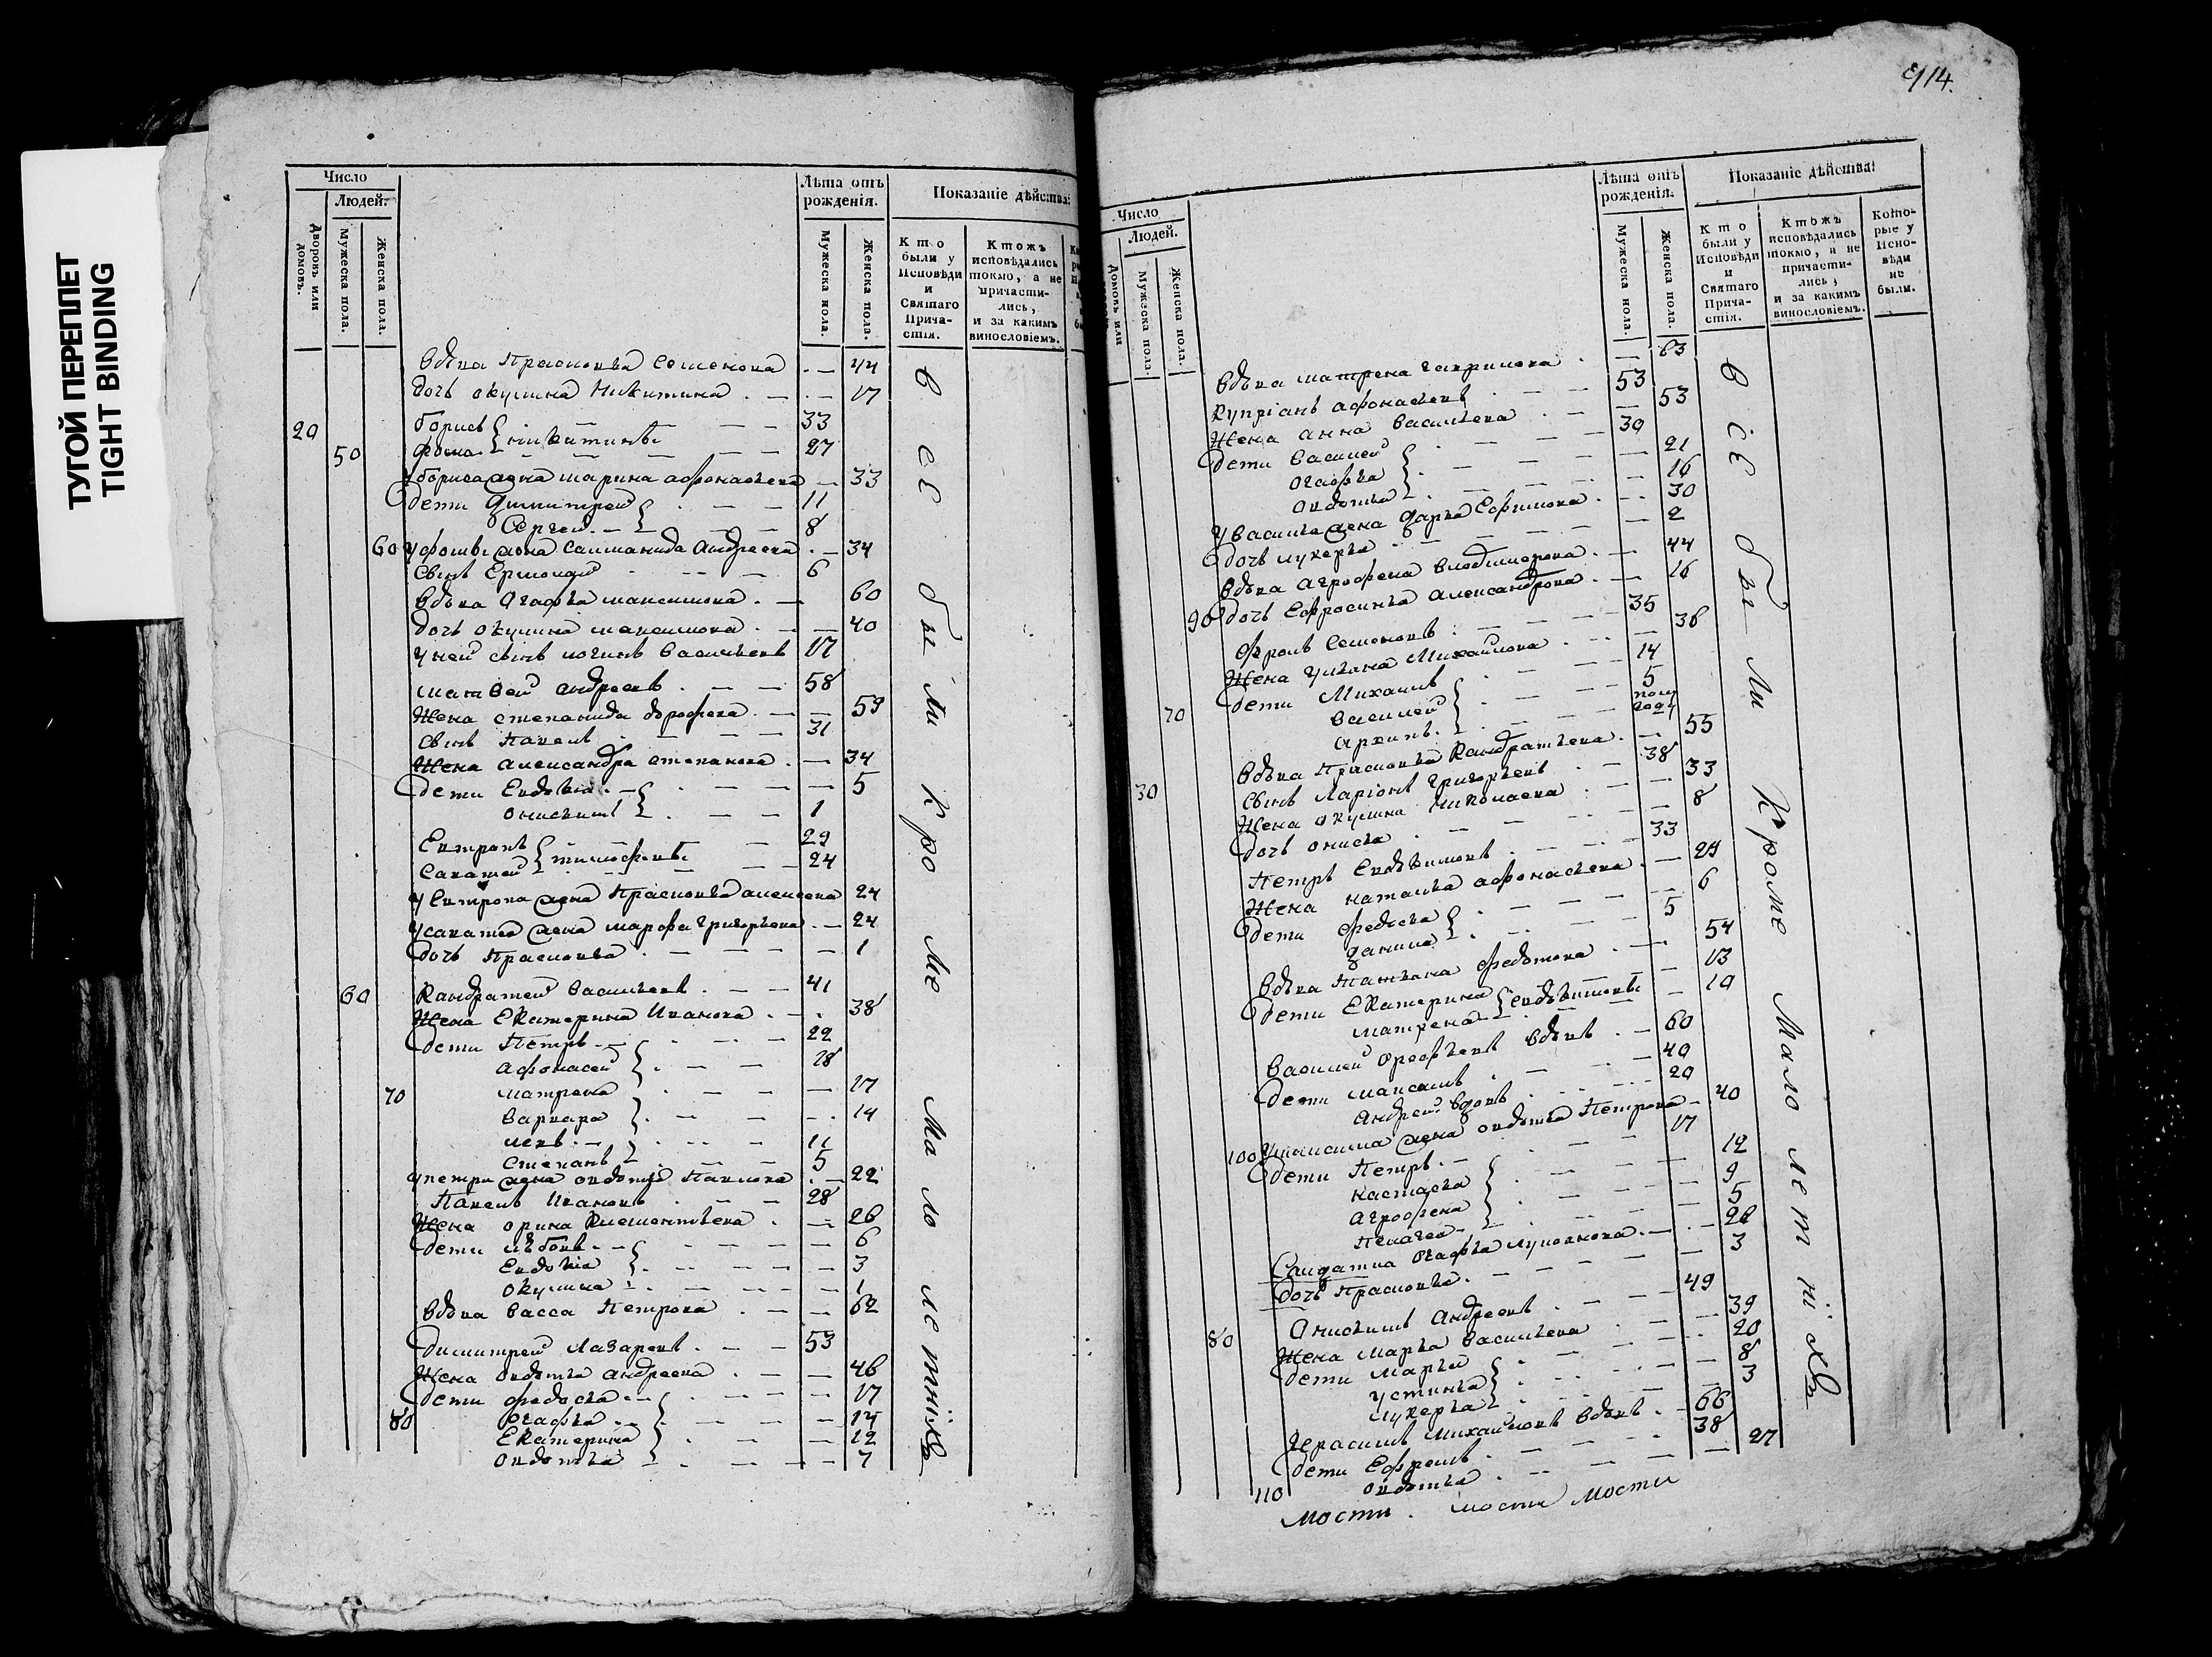 ТУГОЙ ПЕРЕПЛЕТ
TIGHT BINDING
Число
Людей.
Дворовъ или домовъ.
Мужеска пола.
Женска пола.
Лѣта отъ рожденія.
Мужеска пола.
Женска пола.
Показаніе дѣйства:
Кто были у Исповѣди и Святаго Причастія.
Ктожъ исповѣдались токмо, а не причастились, и за какимъ винословіемъ.
вдова Прасковья Семенова . — 44
дочь окулина Никитина . — . — 17
20 борисъ — — — 33
50 фома } никитины — — 27
у бориса жена марина афонасьева — 33
дети Димитрей . — — 11
Сергей — — — 8
60 у фомы жена Саломанида Андреева . — 34
сынъ Ермолай — — 6
вдова Агафья максимова . — 60
дочь окулина максимова . — — 40
у ней сынъ логинъ васильевъ 17
матвей андреевъ . — — 58
Жена степанида дорофеева . — — 59
сынъ Павелъ . — — 31
Жена александра степанова . — 34
дети Евдокія . — — — 5
онисимъ . — — 1
Евтропъ — — — 29
Саватей } тимофеевы — — 24
у Евтропа жена Прасковья алексеева 24
у саватея жена марфа григорьева . — 24
дочь Прасковья . — — — 1
60 Кандратей васильевъ . — — 41
Жена Екатерина Иванова . — . 38
дети Петръ — . — — 22
Афонасей . — — 18
70 матрена . — — — 17
варвара . — — — . 14
левъ . — . — — 11
Степанъ . — — 5
у петра жена овдотья Павлова . — 22
Павелъ Ивановъ . — — 28
Жена орина Клементьева . — 26
дети любовь . — — — 6
Евдокія . — — — 3
окулина . — — — 1
вдова васса Петрова . — — 62
димитрей Лазаревъ . — — 53
Жена овдотья андреева . — — 46
дети федосья — . — — 17
80 Агафья . — — — 14
Екатерина . — — 12
овдотья — — — 7
всѣ были кроме малолетнихъ
914.
Число
Людей.
Домовъ или
Мужеска пола.
Женска пола.
Лѣта отъ рожденія.
Мужеска пола.
Женска пола.
Показаніе дѣйства:
Кто были у Исповѣди и Святаго Причастія.
Ктожъ исповѣдались токмо, а не причастились, и за какимъ винословіемъ.
Которые у Исповѣди не были.
вдова матрена гаврилова . — 63
Купріанъ афонасьевъ . — — 53
Жена анна васильева . — — 53
дети василей . — — 30
Агафья . — — — 21
овдотья . — — — 16
у василья жена дарья Ефимова . — 30
дочь лукерья . — — — 2
вдова Агрофена владимерова . — 44
90 дочь Ефросинья александрова . — 16
Фролъ Семеновъ . — — 35
Жена Ульяна Михайлова . — — 36
дети Михаилъ . — — 14
70 василей . — — 5
архипъ . — — полугоду
вдова Прасковья Кандратьева . — 55
30 сынъ Ларіонъ григорьевъ . — 38
Жена окулина николаева . — 33
дочь онисья . — — — 8
Петръ Евдокимовъ . — — 33
Жена наталья афонасьева . — 24
дети федосья . — — — 6
данила . — — 5
вдова татьяна федотова . — 54
дети Екатерина — 13
матрена } евдокимовы — 10
василей орефьевъ вдовъ . — 60
дети максимъ . — — 40
андрей вдовъ . — — 20
100 у максима жена овдотья Петрова — 40
дети Петръ . — — 17
настасья . — — — 12
агрофена . — — — 9
Пелагея . — — — 5
Салдатка Агафья лукьянова . — . — 26
дочь Прасковья . — — — 3
80 Анисимъ андреевъ . — — 49
Жена марья васильева . — 39
дети марья . — — . 20
устинья . — — — 8
лукерья . — — — 3
герасимъ михайловъ вдовъ . — 66
дети Ефремъ . — — 38
110 овдотья . — — — 27
всѣ были Кроме Малолетніхъ
мости . мости мости